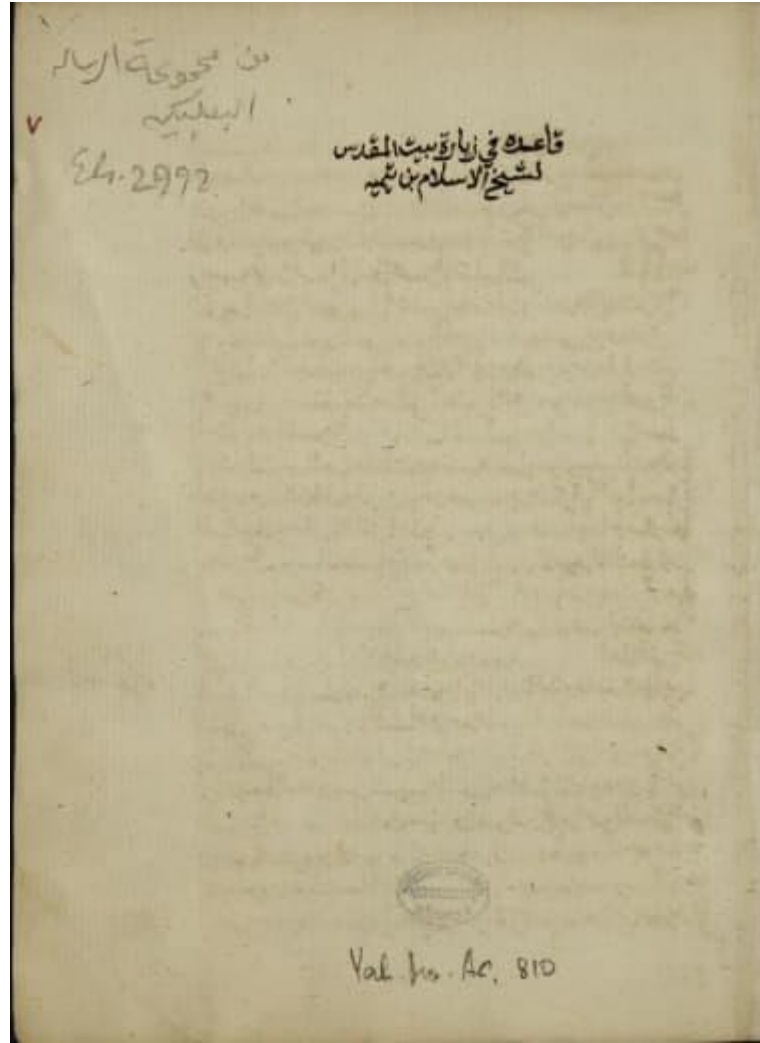 من مجموعة الرساله
البعلبكيه
٧
قاعده في زيارة بيت المقدس
لشيخ الاسلام بن تيميه
Yah. no. Ar. 810